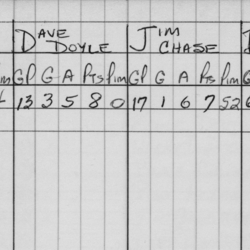 DAVE JIM
DOYLE CHASE
GP G A Pts Pim GP G A Pts Pim
13 3 5 8 0 17 1 6 7 52